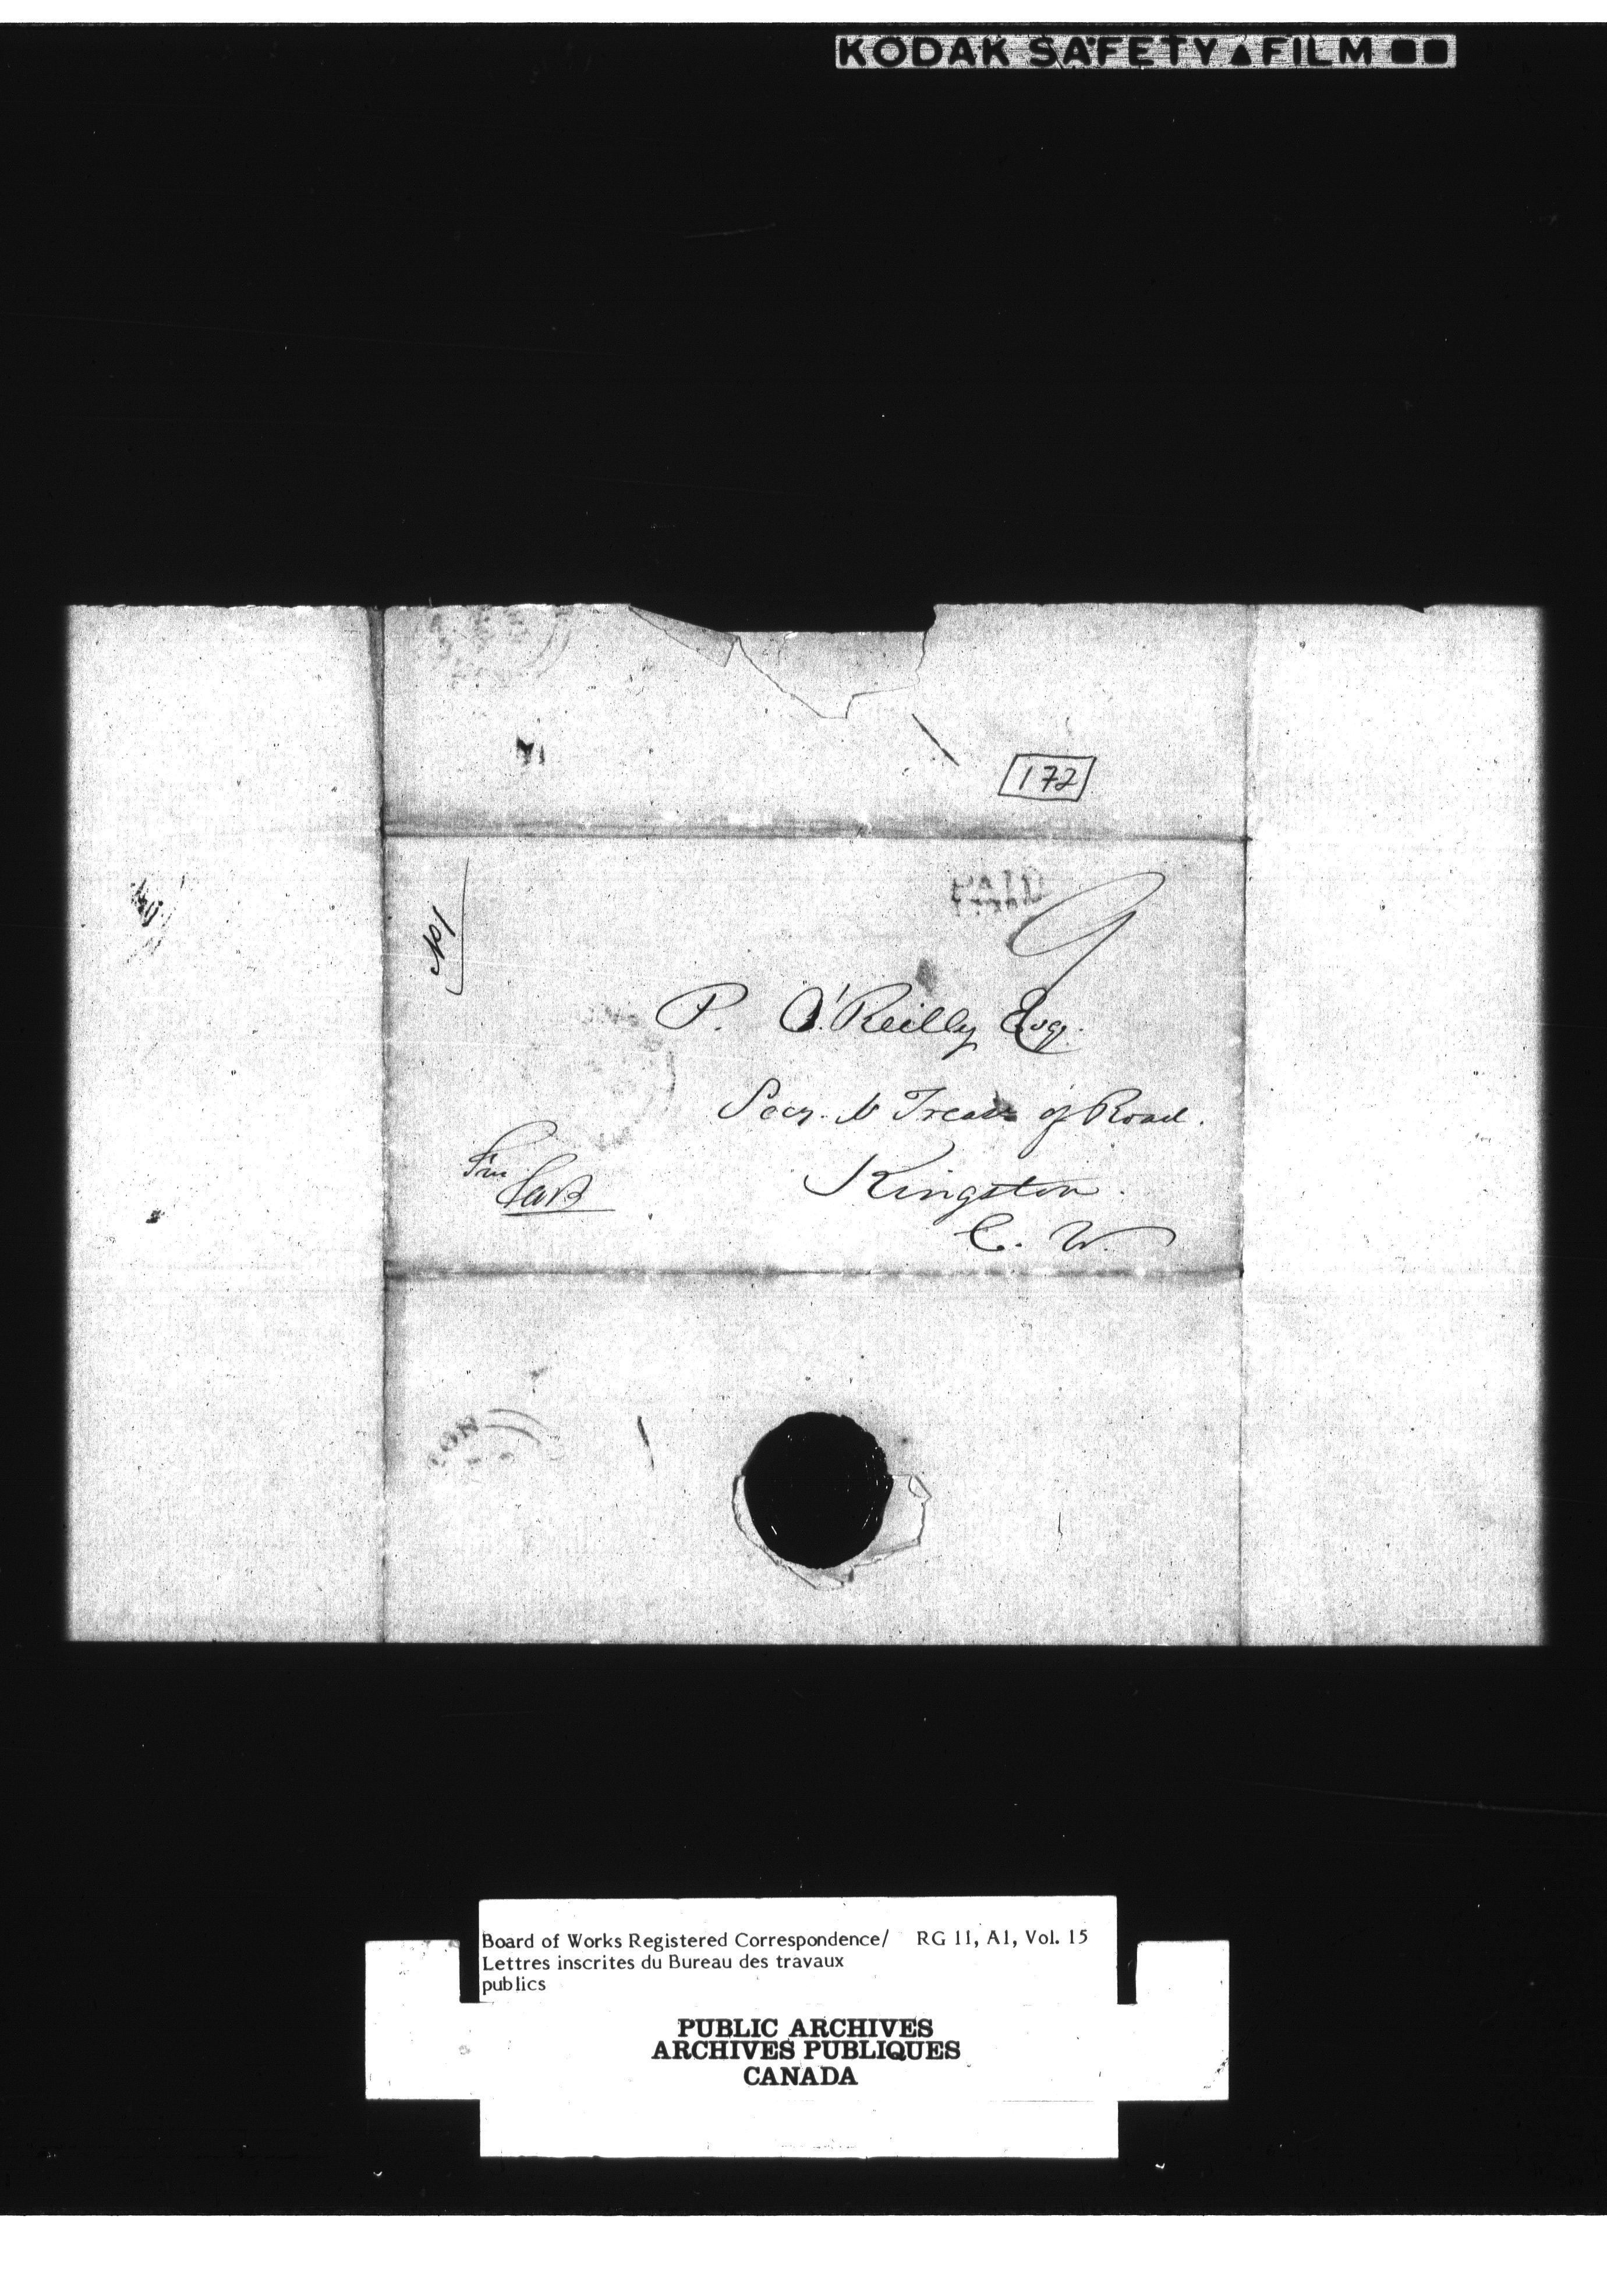 KODAK SAFETY▲FILM ■■
172
PAID
9
No 1
P. O'Reilly Esq.
Secy. & Treas of Road.
Kingston.
C. W.
Board of Works Registered Correspondence/ RG 11, A1, Vol. 15
Lettres inscrites du Bureau des travaux
publics
PUBLIC ARCHIVES
ARCHIVES PUBLIQUES
CANADA